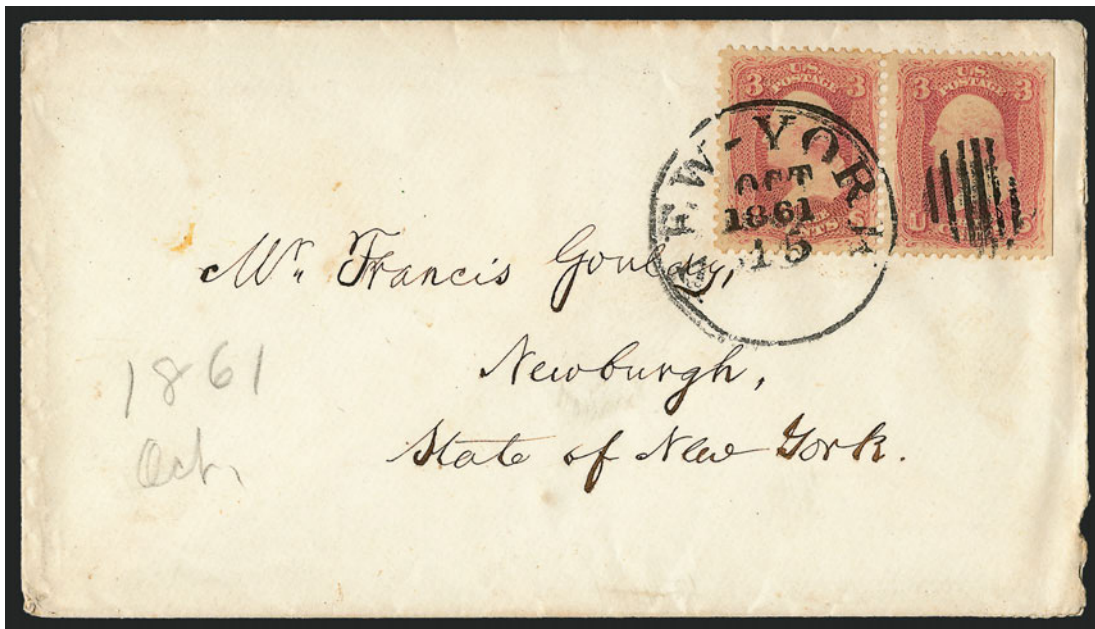 3 U.S. POSTAGE 3
3 U.S. POSTAGE 3
NEW-YORK
OCT
1861
15
Mr. Francis Gouldy,
Newburgh,
State of New York.
1861
Oct,